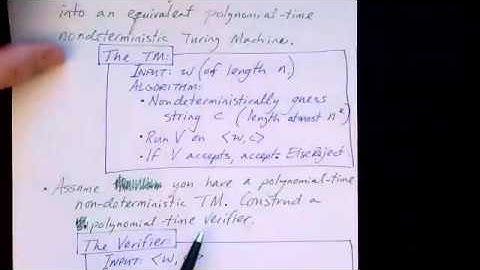 into an equivalent polynomial-time
nondeterministic Turing Machine.
The TM:
INPUT: w (of length n)
ALGORITHM:
• Nondeterministically guess
string c (length atmost nᵏ)
• Run V on <w,c>
• If V accepts, accept; Else Reject
• Assume you have a polynomial-time
non-deterministic TM. Construct a
polynomial-time verifier.
The Verifier:
INPUT: <w, c>